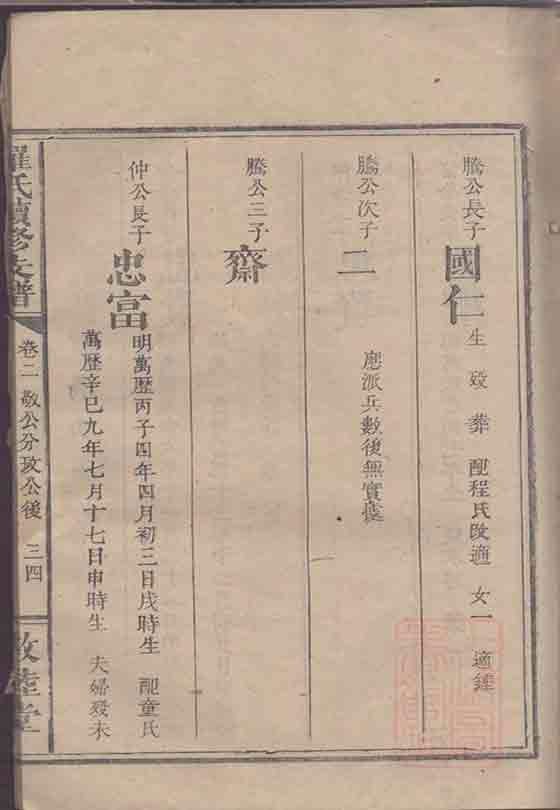 騰公長子 國仁 生 歿 葬 配程氏改適 女一 適鍾
騰公次子 二 應派兵數後無實據
騰公三子 齋
仲公長子 忠富 明萬歷丙子四年四月初三日戌時生 配童氏
萬歷辛巳九年七月十七日申時生 夫婦歿未
羅氏續修支譜 卷二 敬公分攷公後 三四 敦睦堂